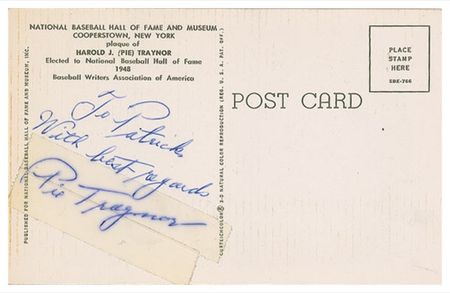 NATIONAL BASEBALL HALL OF FAME AND MUSEUM
COOPERSTOWN, NEW YORK
plaque of
HAROLD J. (PIE) TRAYNOR
Elected to National Baseball Hall of Fame
1948
Baseball Writers Association of America
To Patrick
With best regards
Pie Traynor
PUBLISHED FOR NATIONAL BASEBALL HALL OF FAME AND MUSEUM, INC.
CURTEICHCOLOR® 3-D NATURAL COLOR REPRODUCTION (REG. U.S.A. PAT. OFF.)
POST CARD
PLACE
STAMP
HERE
5DE-766